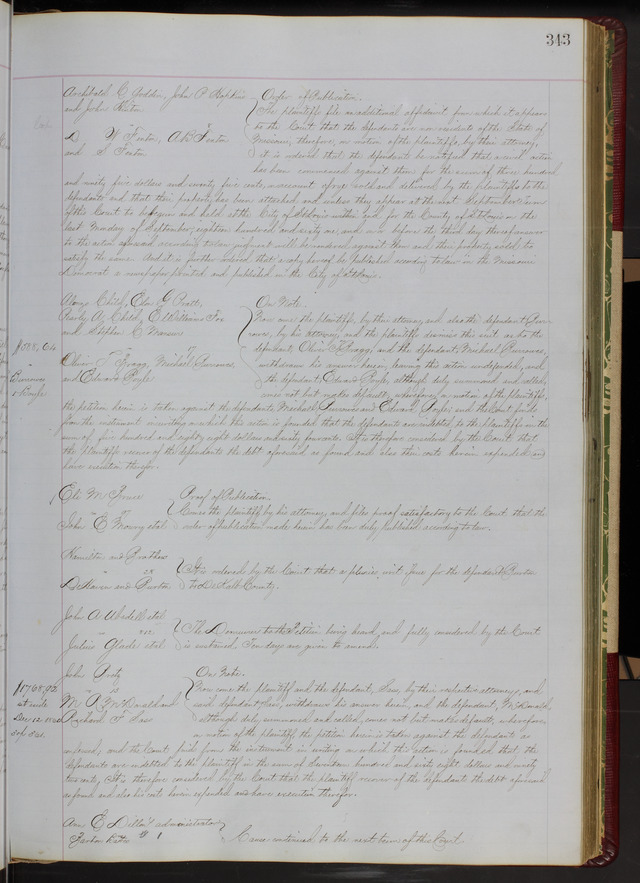 343
Archibald C. Goddin, John P. Hopkins
and John
Order of Publication.
The plaintiffs file an additional affidavit from which it appears
to the Court that the defendants are non residents of the State of
Missouri, therefore, on motion of the plaintiffs, by their attorney,
it is ordered that the defendants be notified that a civil action
has been commenced against them for the sum of three hundred
vs
D. Y. Fenton, A.B. Fenton
and S. Fenton
and ninety five dollars and seventy five cents, on account of goods sold and delivered by the plaintiffs to the
defendants and that their property has been attached, and unless they appear at the next September Term
of this Court to be begun and held at the City of St Louis within and for the County of St Louis on the
last Monday of September, eighteen hundred and sixty one, and on or before the third day thereof answer
to the action aforesaid according to law judgment will be rendered against them and their property sold, to
satisfy the same. And it is further ordered that a copy hereof be published according to law in the Missouri
Democrat a newspaper printed and published in the City of St Louis.
Alonzo Child, Elon G. Pratt,
A. Child, E. Williams Fox
and Stephen C.
vs
Oliver T. Bragg, Michael Burrows,
and Edward Pogle
On Note.
Now come the plaintiffs, by their attorney and also the defendant
by his attorney, and the plaintiffs dismiss this suit as to the
defendant, Oliver T. Bragg, and the defendant, Michael Burrows,
withdraws his answer herein, leaving this action undefended, and
the defendant, Edward Pogle, although duly summoned and called,
comes not but makes default; wherefore, on motion of the plaintiffs,
the petition herein is taken against the defendants Michael Burrows and Edward Pogle; and the Court finds
from the instrument in writing on which this action is founded that the defendants are indebted to the plaintiffs in the
sum of five hundred and eighty eight dollars and sixty four cents. It is therefore considered by the Court that
the Plaintiffs recover of the defendants the debt aforesaid as found and also their costs herein expended and
have execution therefor.
$588.64
Burrows
& Pogle
Eli M.
vs
John E. et al
Proof of Publication.
Comes the plaintiff by his attorney, and files proof satisfactory to the Court that the
order of publication made herein has been duly published according to law.
Hamilton and Brothers
vs
DeHaven and Burton
It is ordered by the Court that a pluries writ issue for the defendant, Burton
to DeKalb County.
John A. Ubsdell et al
vs
Julius Glade et al
The Demurrer to the Petition being heard, and fully considered by the Court
is sustained. Ten days are given to amend.
John
vs
M. A. McDonald and
Richard F. Sass
On Note.
Now come the plaintiff and the defendant, Sass, by their respective attorneys, and
said defendant Sass, withdraws his answer herein, and the defendant, McDonald,
although duly summoned and called, comes not but makes default, wherefore,
on motion of the plaintiff the petition herein is taken against the defendants as
confessed, and the Court finds from the instrument in writing on which this action is founded that the
defendants are indebted to the plaintiff in the sum of seventeen hundred and sixty eight dollars and ninety
two cents, It is therefore considered by the Court that the plaintiff recover of the defendants the debt aforesaid
as found and also his costs herein expended and have execution therefor.
$1768.92
Dec. 12
Ann E. Dillon's administrator
vs
Cause continued to the next term of this Court